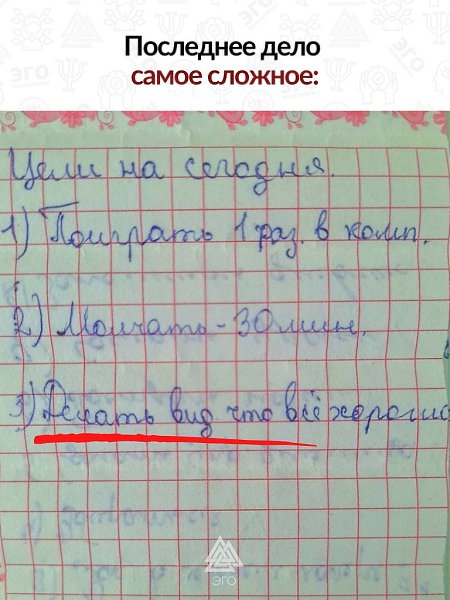 Последнее дело
самое сложное:
Цели на сегодня.
1) Поиграть 1 раз. в комп.
2) Молчать - 30 мин.
3) Делать вид что всё хорошо
ЭГО